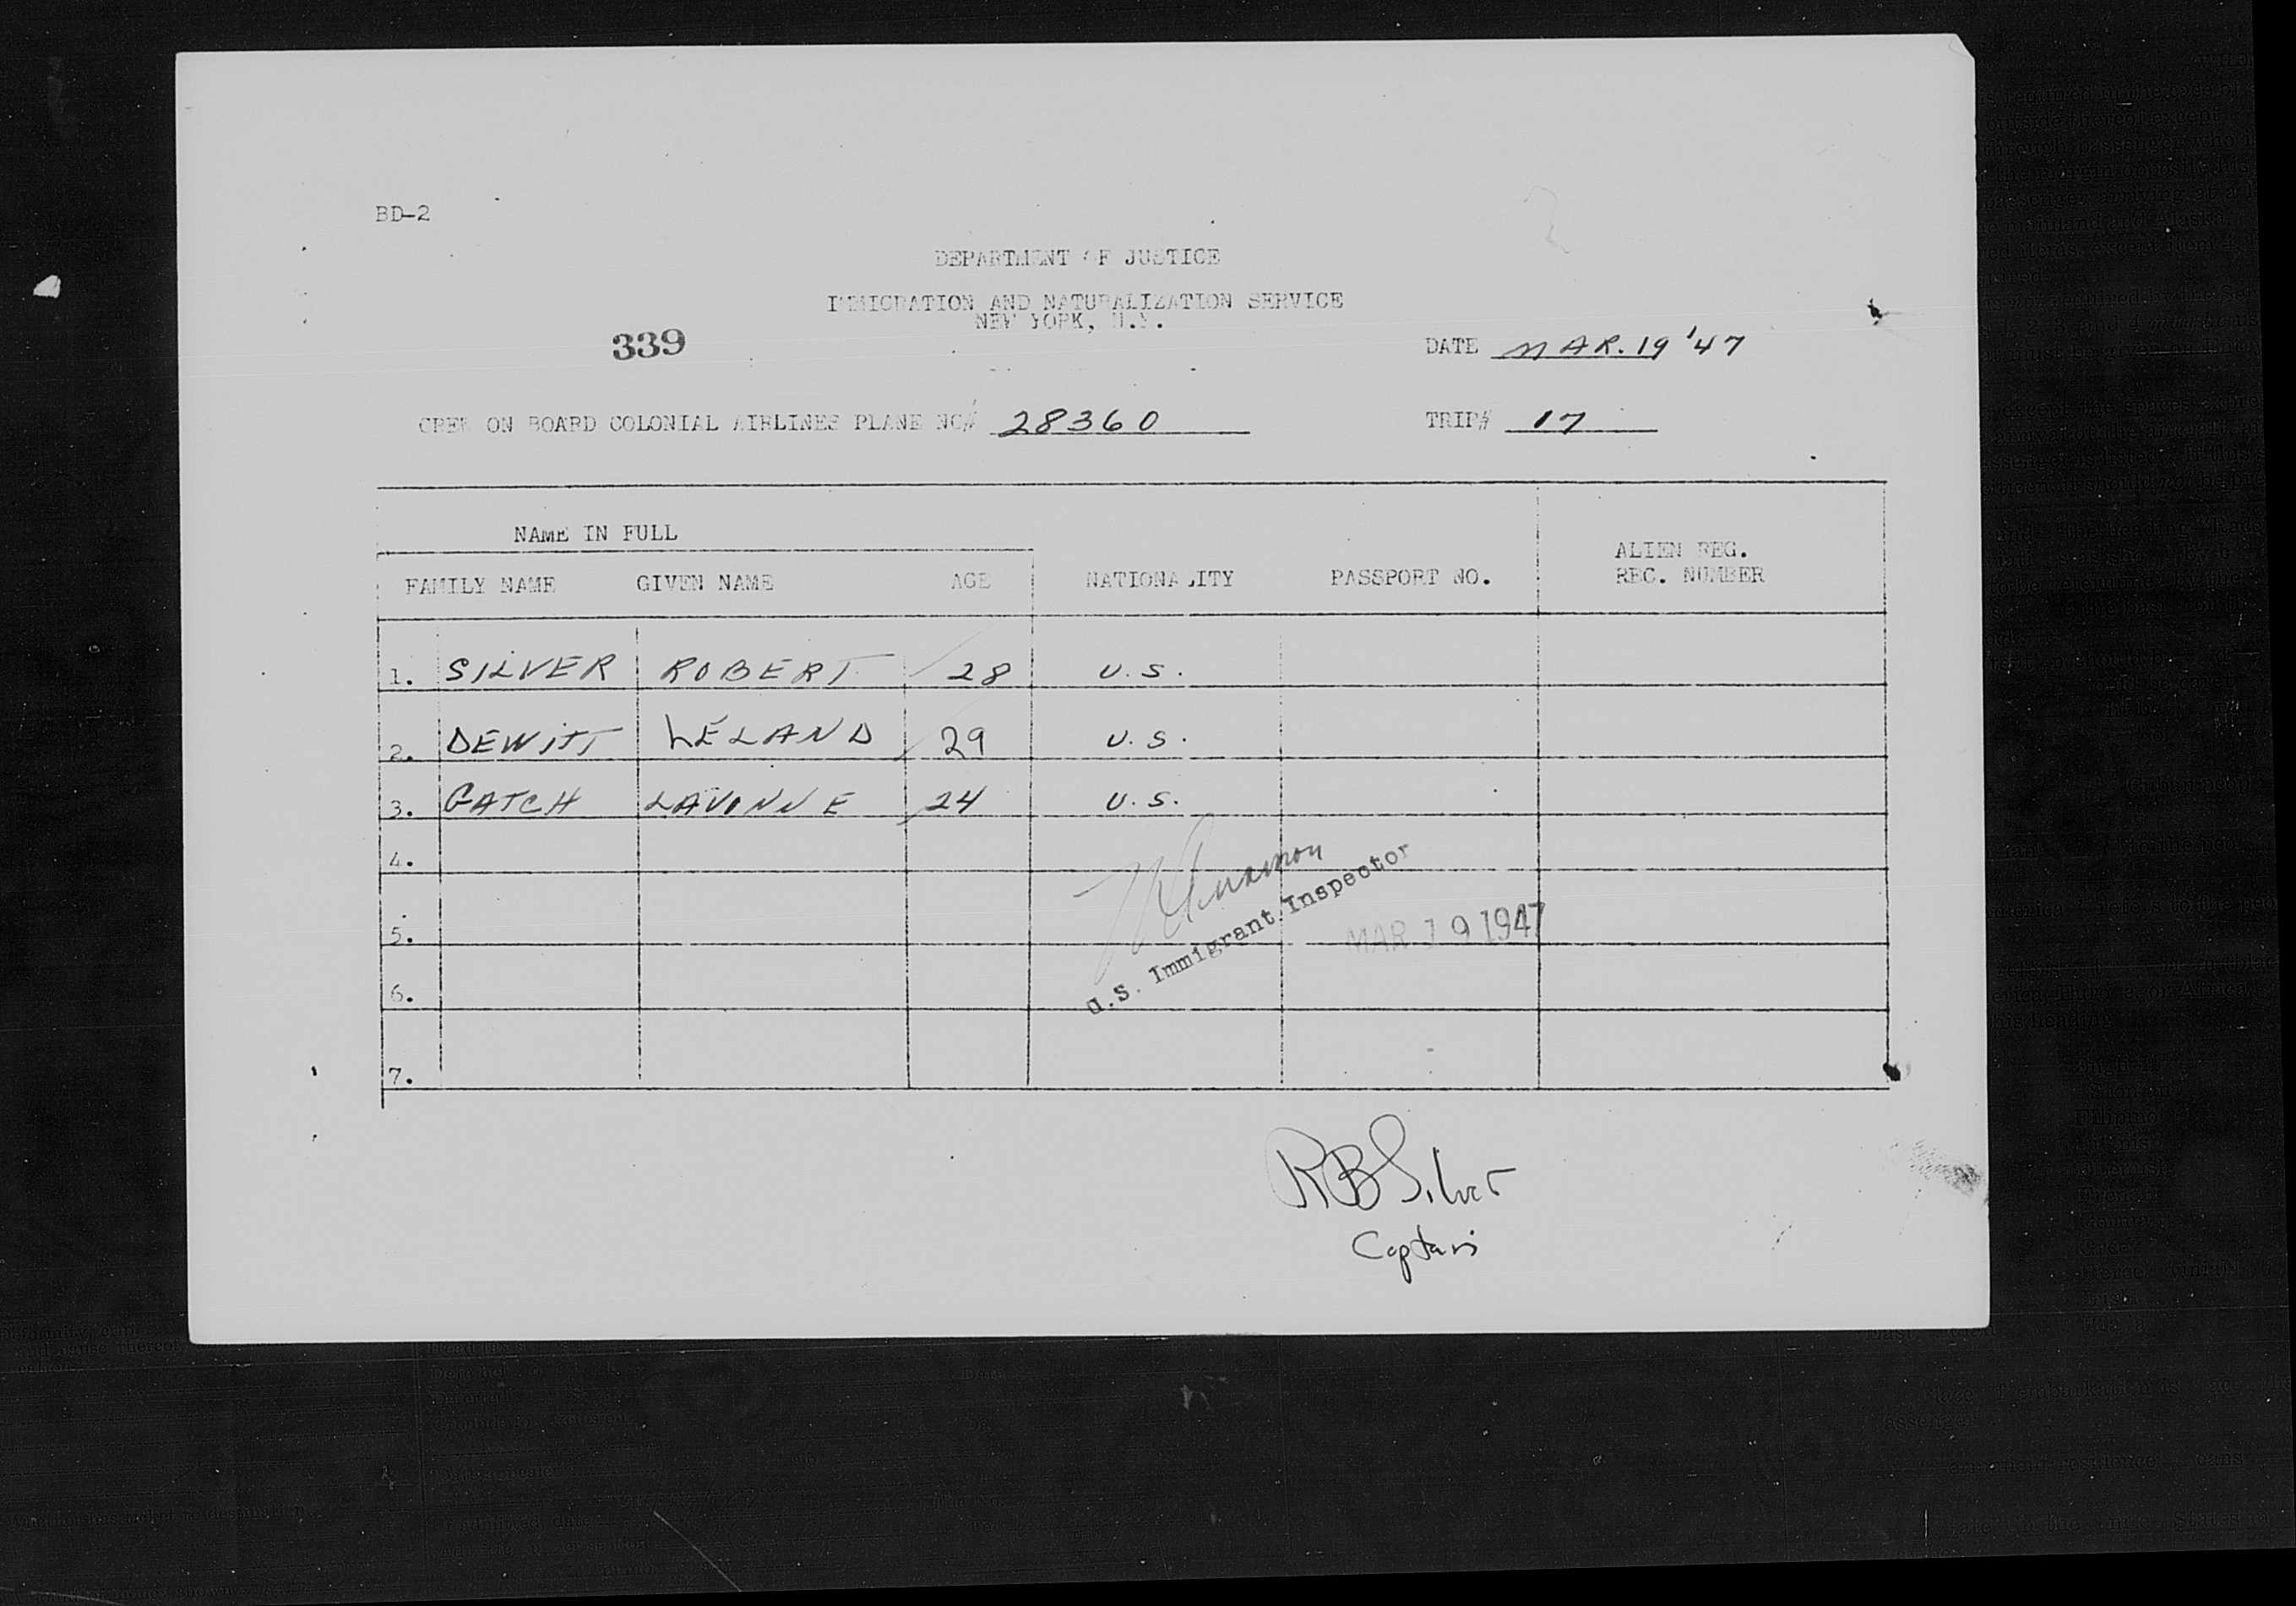 BD-2
DEPARTMENT OF JUSTICE
IMMIGRATION AND NATURALIZATION SERVICE
NEW YORK, N.Y.
339
DATE MAR. 19 '47
CREW ON BOARD COLONIAL AIRLINES PLANE NO# 28360 TRIP# 17
NAME IN FULL
FAMILY NAME GIVEN NAME AGE NATIONALITY PASSPORT NO. ALIEN REG. REC. NUMBER
1. SILVER ROBERT 28 U.S.
2. DEWITT LELAND 29 U.S.
3. GATCH LAVONNE 24 U.S.
4.
5.
6.
7.
U.S. Immigrant Inspector
MAR 19 1947
RB Silver
Captain